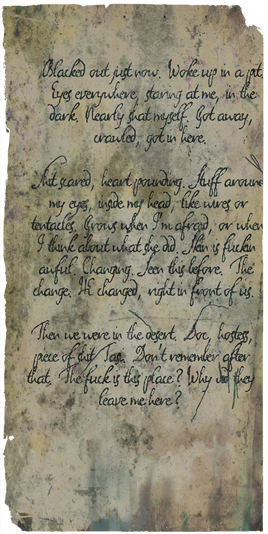 Blacked out just now. Woke up in a pit.
Eyes everywhere, staring at me, in the
dark. Nearly shat myself. Got away,
crawled, got in here.
Shit scared, heart pounding. Stuff around
my eyes, inside my head, like wires or
tentacles. Grows when I'm afraid, or when
I think about what she did. Skin is fuckin
awful. Changing. Seen this before. The
change. He changed, right in front of us.
Then we were in the desert. Doc, hostess,
piece of shit Tas. Don't remember after
that. The fuck is this place? Why did they
leave me here?